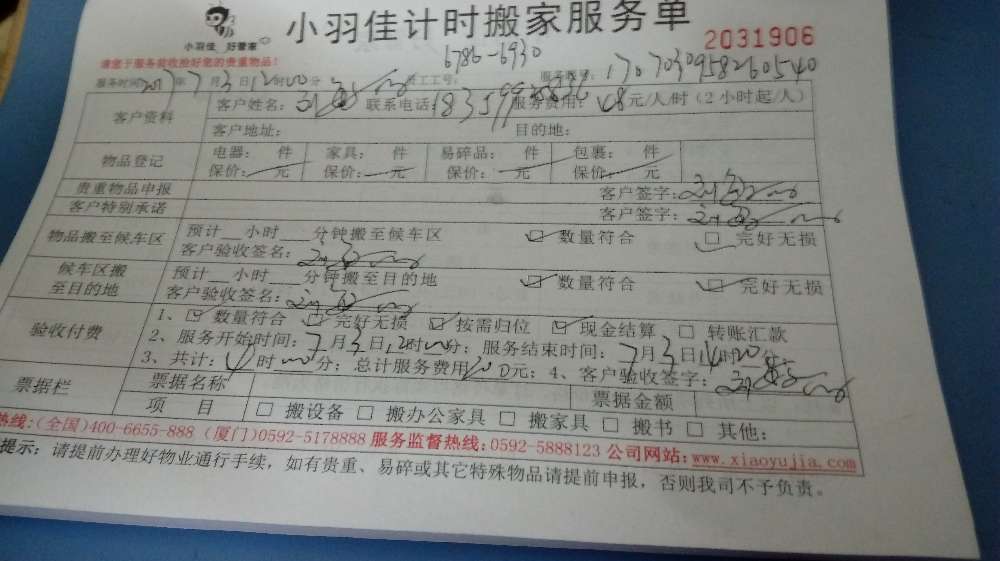 小羽佳 好管家
小羽佳计时搬家服务单
2031906
请您于服务前收捡好您的贵重物品!
6786-6930
服务时间2017年7月3日12时00分 员工工号: 服务账号: 1707030958260540
客户资料
客户姓名: 联系电话: 服务费用: 48元/人/时 (2小时起/人)
客户地址: 目的地:
物品登记
电器: 件 家具: 件 易碎品: 件 包裹: 件
保价: 元 保价: 元 保价: 元 保价: 元
贵重物品申报 客户签字:
客户特别承诺 客户签字:
物品搬至候车区
预计__小时___分钟搬至候车区 数量符合 完好无损
客户验收签名:
候车区搬至目的地
预计__小时___分钟搬至目的地 数量符合 完好无损
客户验收签名:
验收付费
1、 数量符合 完好无损 按需归位 现金结算 转账汇款
2、服务开始时间: 7月3日12时00分; 服务结束时间: 7月3日14时00分
3、共计: 时00分; 总计服务费用 元; 4、客户验收签字:
票据栏
票据名称 票据金额
项 目 搬设备 搬办公家具 搬家具 搬书 其他:
热线:(全国)400-6655-888 (厦门)0592-5178888 服务监督热线:0592-5888123 公司网站:www.xiaoyujia.com
提示: 请提前办理好物业通行手续, 如有贵重、易碎或其它特殊物品请提前申报, 否则我司不予负责。